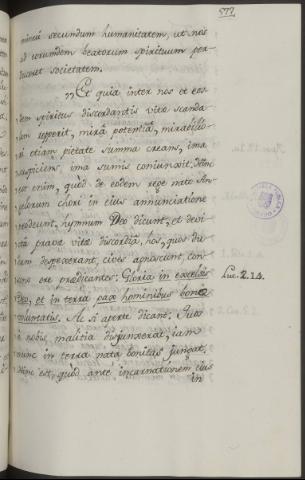 572
minici secundum humanitatem, ut nos
ad eorumdem beatorum spirituum per
duceret societatem.
"Et quia inter nos et eos-
dem spiritus discordantis vitæ scanda
lum reperit, mirâ potentiâ, mirabilio-
ri etiam pietate summa creans, ima
suspiciens, ima sumis coniunxit. Hinc
est enim, quod de eodem rege nato An-
gelorum chori in eius annunciatione
prodeunt, hymnum Deo dicunt, et devi-
ctâ pravæ vitæ discordiâ, hos, quos du-
dum despexerant, cives agnoscunt, con-
sono ore prædicantes: Gloria in excelsis
Deo, et in terra pax hominibus bonæ
Luc. 2. 14.
voluntatis. Ac si aperte dicant: Quos
a nobis malitia disjunxerat, iam
nunc in terra nata bonitas jungat.
Hinc est, quod ante incarnationem eius
in